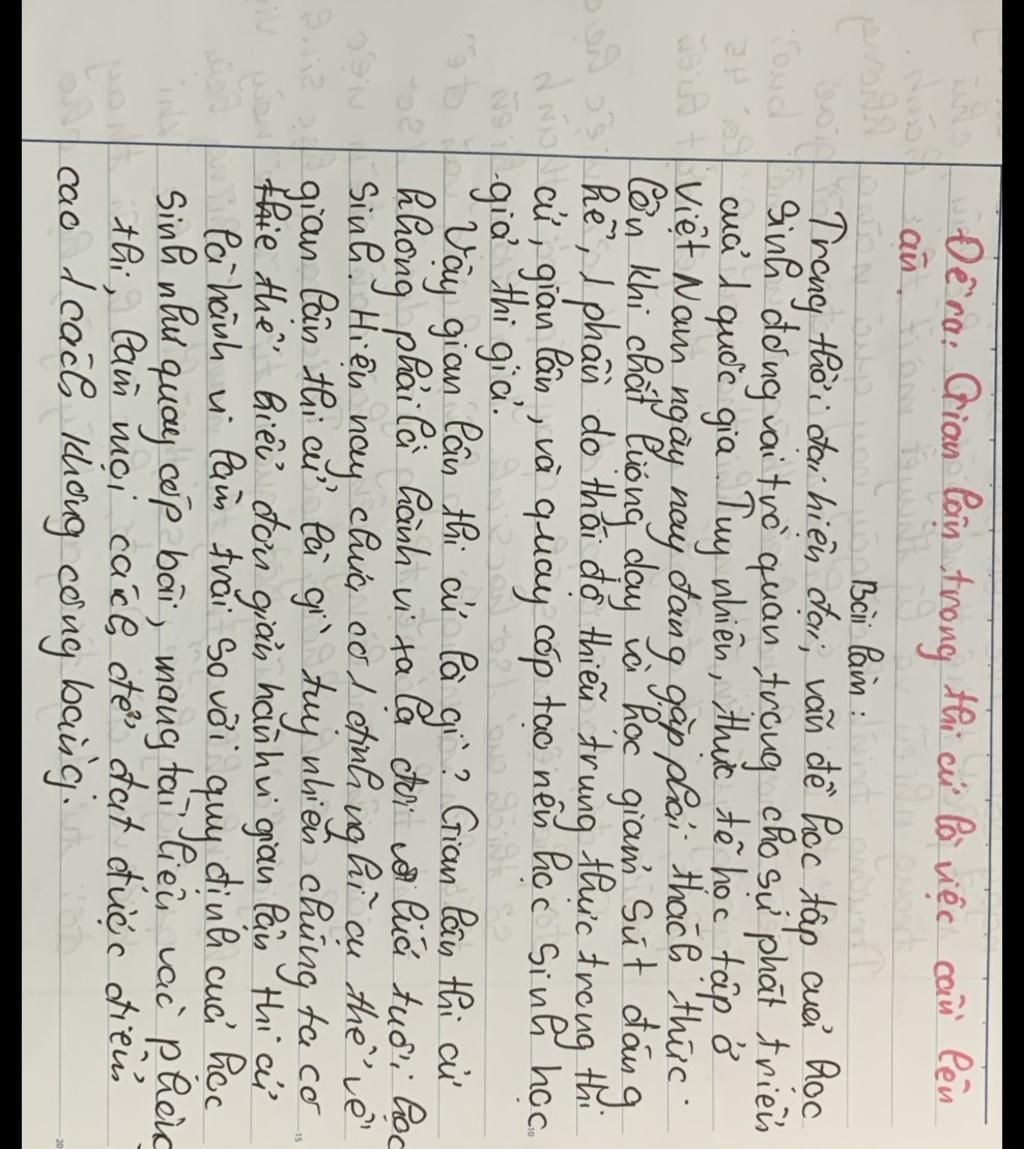 Đề ra: Gian lận trong thi cử là việc cần lên
án.
Bài làm:
Trong thời đại hiện đại, vấn đề học tập của học
sinh đóng vai trò quan trọng cho sự phát triển
của 1 quốc gia. Tuy nhiên, thực tế học tập ở
Việt Nam ngày nay đang gặp phải thách thức
lớn khi chất lượng dạy và học giảm sút đáng
kể, 1 phần do thái độ thiếu trung thực trong thi
cử, gian lận, và quay cóp tạo nên học sinh học
giả thi giả.
Vậy gian lận thi cử là gì? Gian lận thi cử
không phải là hành vi xa lạ đối với lứa tuổi học
sinh. Hiện nay chưa có 1 định nghĩa cụ thể về
gian lận thi cử là gì tuy nhiên chúng ta có
thể hiểu đơn giản hành vi gian lận thi cử
là hành vi làm trái so với quy định của học
sinh như quay cóp bài, mang tài liệu vào phòng
thi, làm mọi cách để đạt được điểm
cao 1 cách không công bằng.
10
15
20